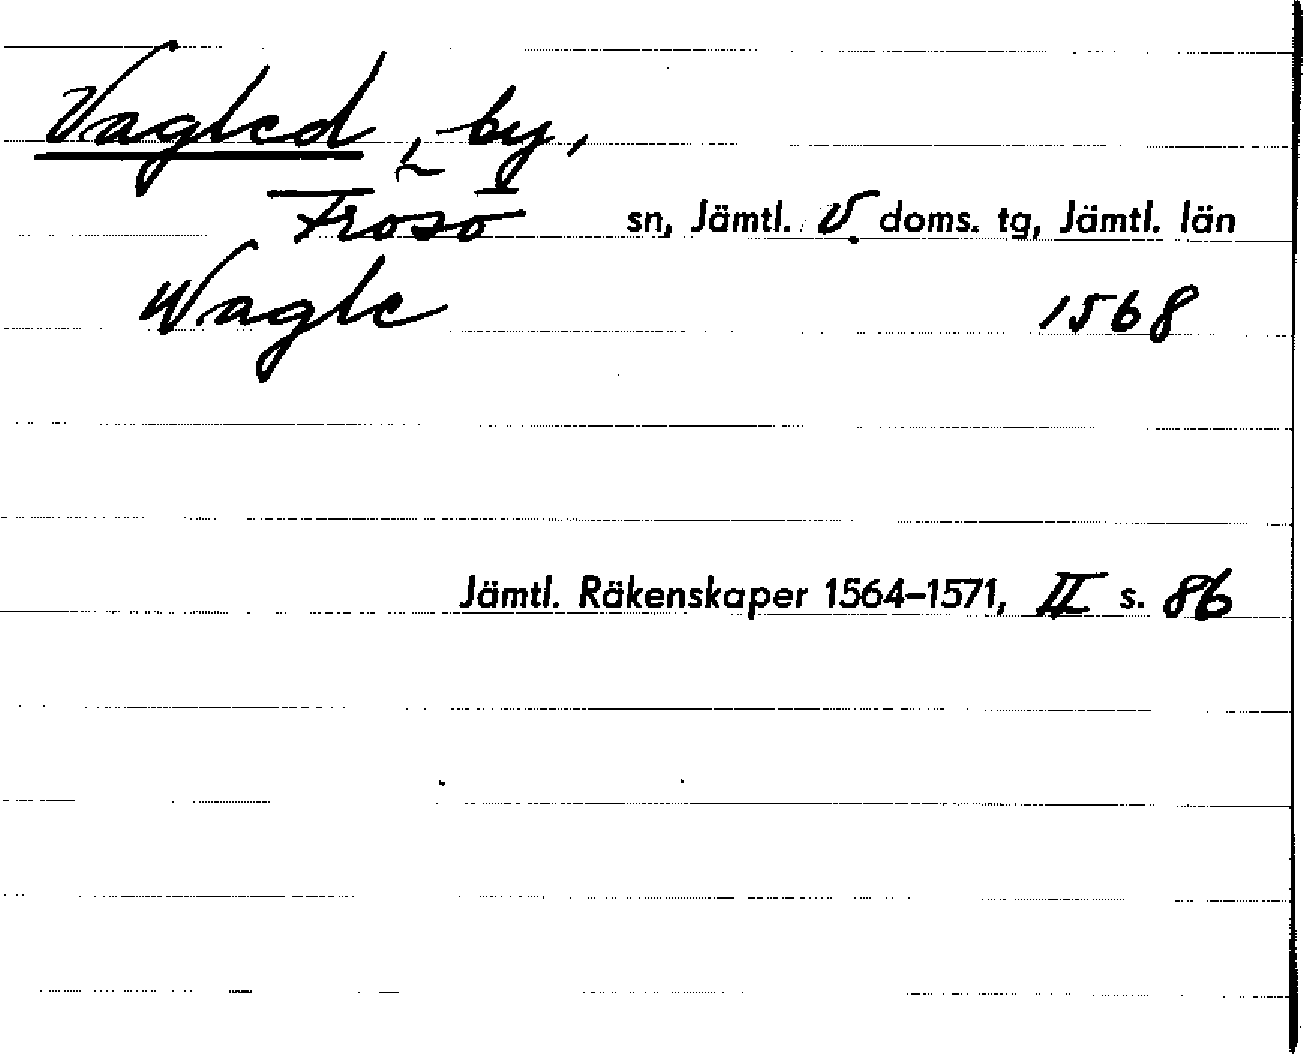 Vagled, by,
Frösö sn, Jämtl. V. doms. tg, Jämtl. län
Wagle 1568
Jämtl. Räkenskaper 1564–1571, II s. 86